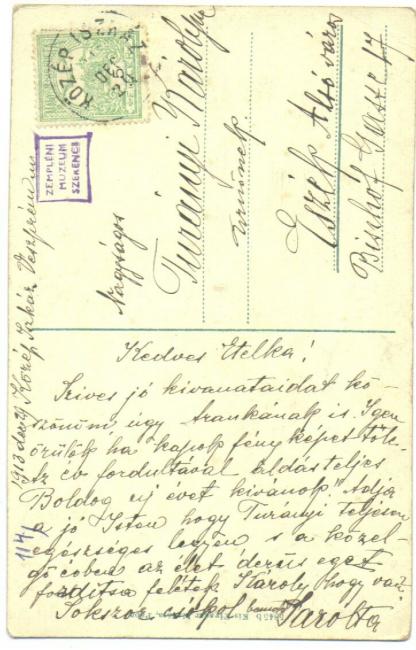 KÖZÉP ISZKÁZ
DEC
ZEMPLÉNI
MUZEUM
SZERENCS
Nagyságos
Turányi Károlyné
urnőnek.
Eszék Alsóváros
Bischóf Gasse 47
1913 dec 29 Közép Iszkáz Veszprém m
Kedves Etelka!
Szives jó kivanataidat kö-
szönöm úgy Arankának is. Igen
örülök ha kapok fény képet tőle
Az év fordultával áldásteljes
Boldog uj évet kivánok." Adja
a jó Isten hogy Turányi teljesen
egészséges legyen s a közel-
gő évben az élet derüs eget
fordítsa felétek Karoly hogy van
Sokszor csókol Sarolta
114/1